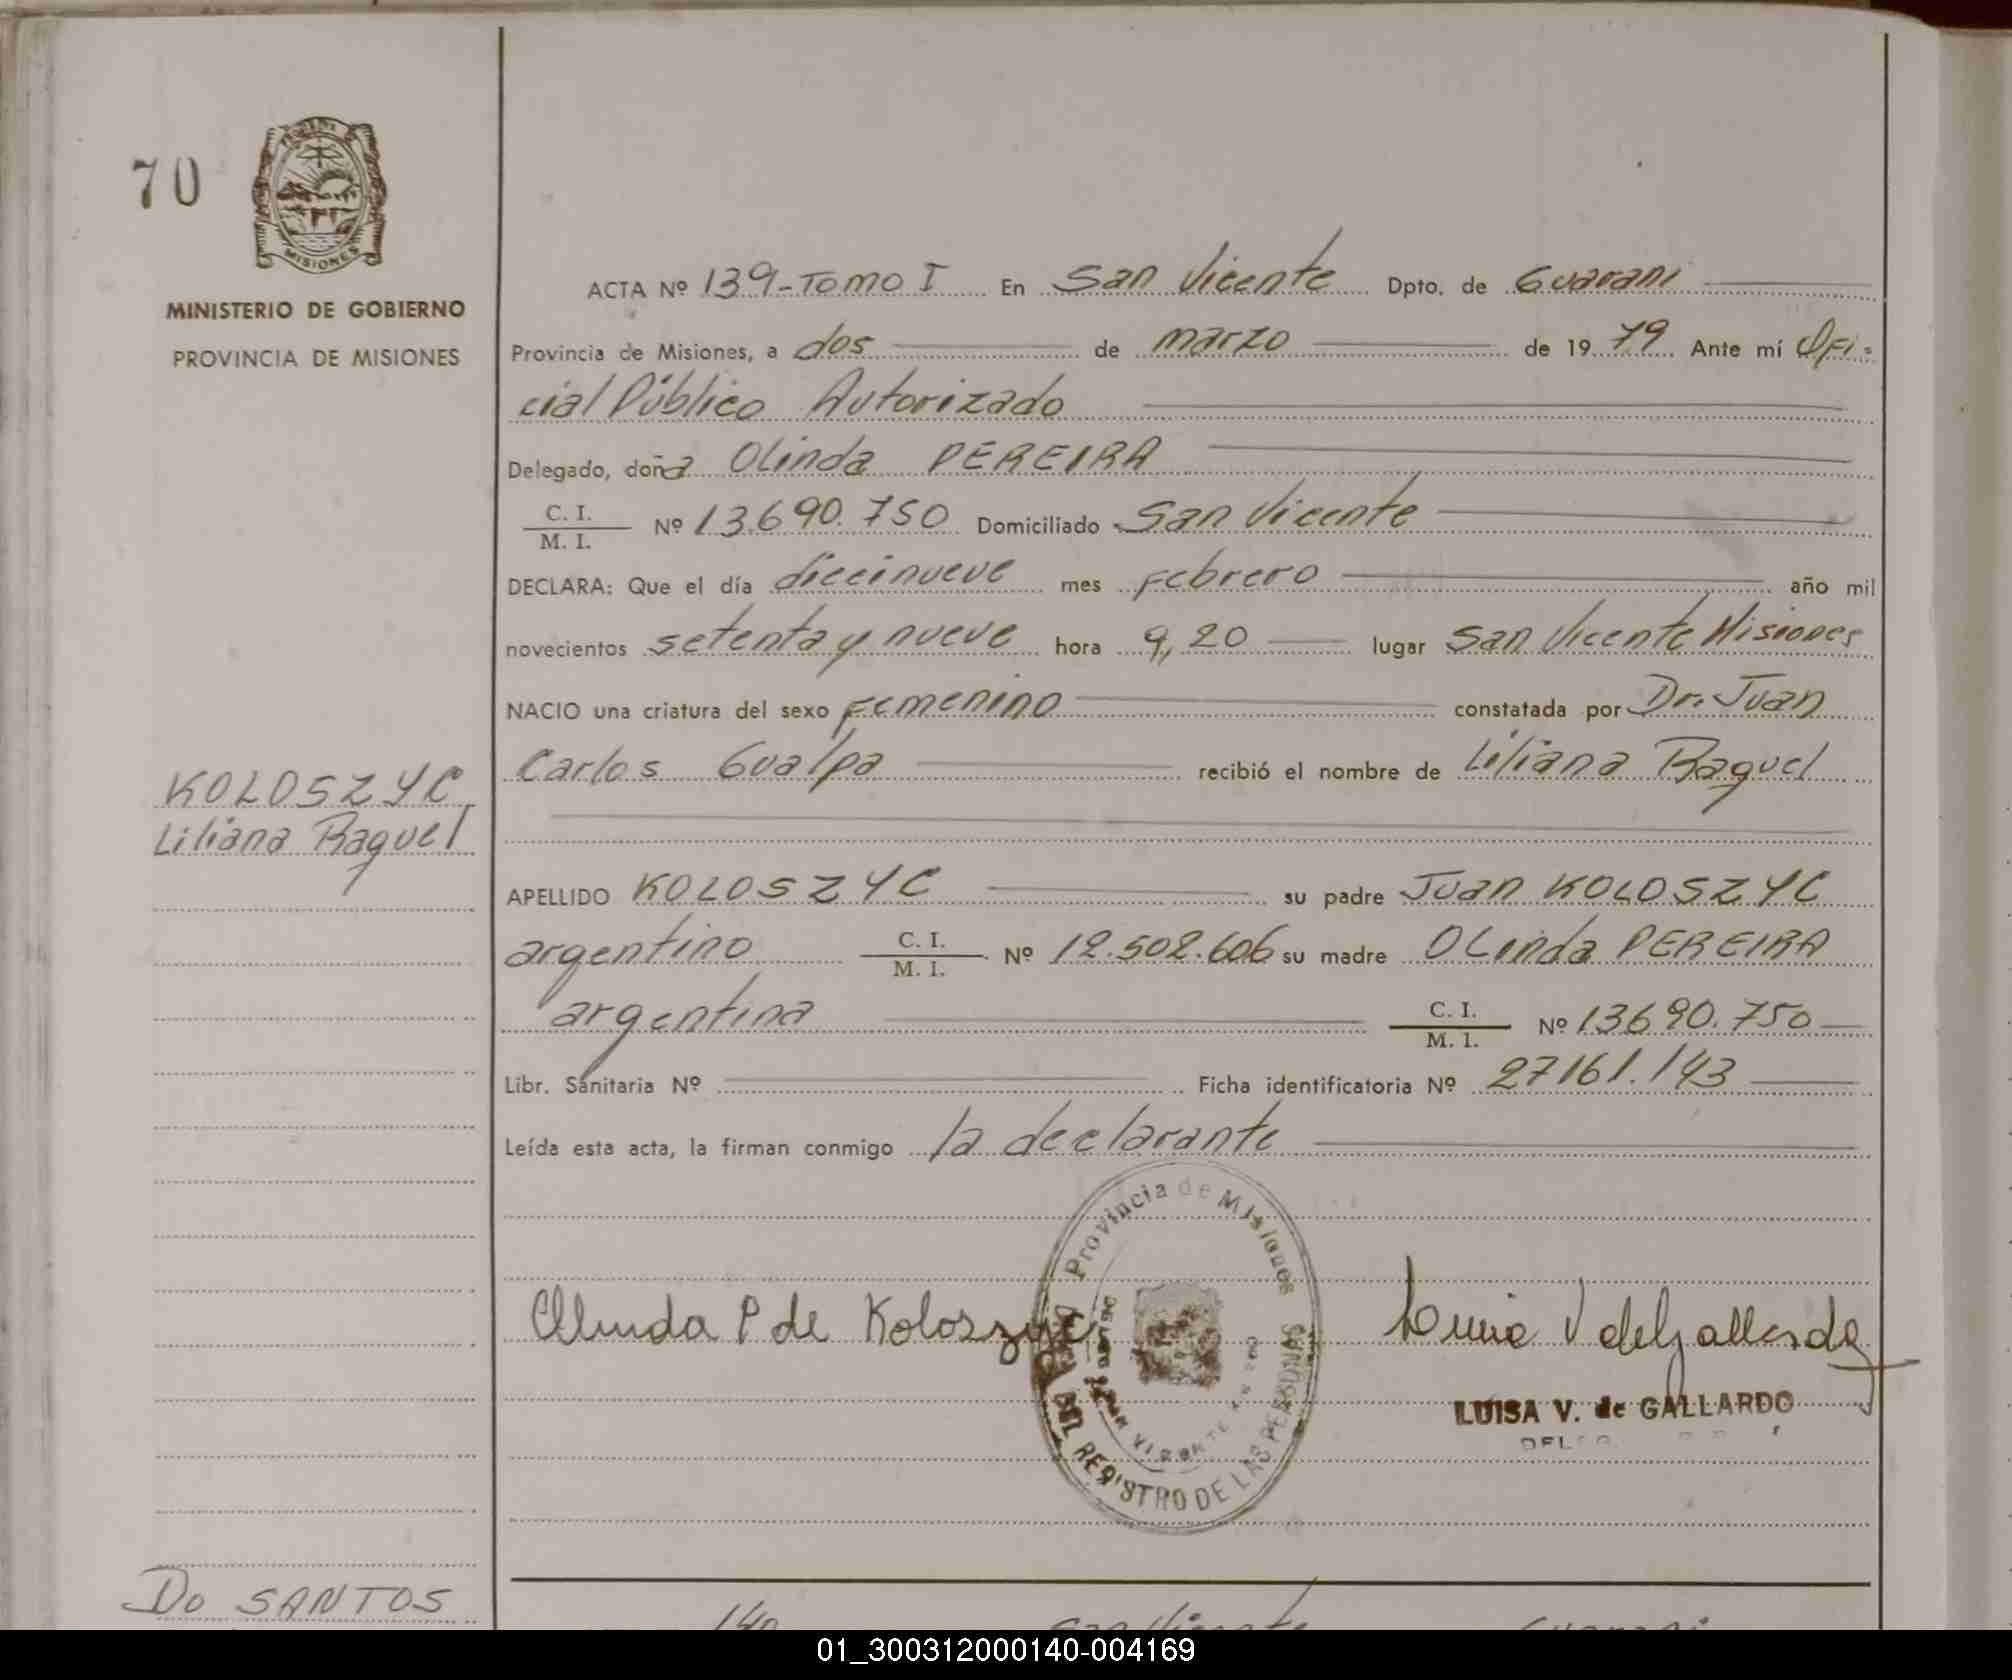 70
MISIONES
MINISTERIO DE GOBIERNO
PROVINCIA DE MISIONES
KOLOSZYC
Liliana Raquel
ACTA Nº 139-Tomo I En San Vicente Dpto. de Guarani
Provincia de Misiones, a dos de marzo de 1979 Ante mí Ofi-
cial Público Autorizado
Delegado, doña Olinda PEREIRA
C. I.
M. I. Nº 13.690.750 Domiciliado San Vicente
DECLARA: Que el día diecinueve mes Febrero año mil
novecientos setenta y nueve hora 9,20 lugar San Vicente Misiones
NACIO una criatura del sexo Femenino constatada por Dr. Juan
Carlos Gualpa recibió el nombre de Liliana Raquel
APELLIDO KOLOSZYC su padre Juan KOLOSZYC
argentino C. I. M. I. Nº 12.502.606 su madre OLinda PEREIRA
argentina C. I. M. I. Nº 13690.750
Libr. Sanitaria Nº Ficha identificatoria Nº 27161.143
Leída esta acta, la firman conmigo la declarante
Provincia de Misiones
REGISTRO DE LAS PERSONAS
Olinda P de Koloszyc
LUISA V. de GALLARDO
Do SANTOS
140 San Vicente Guarani
01_300312000140-004169